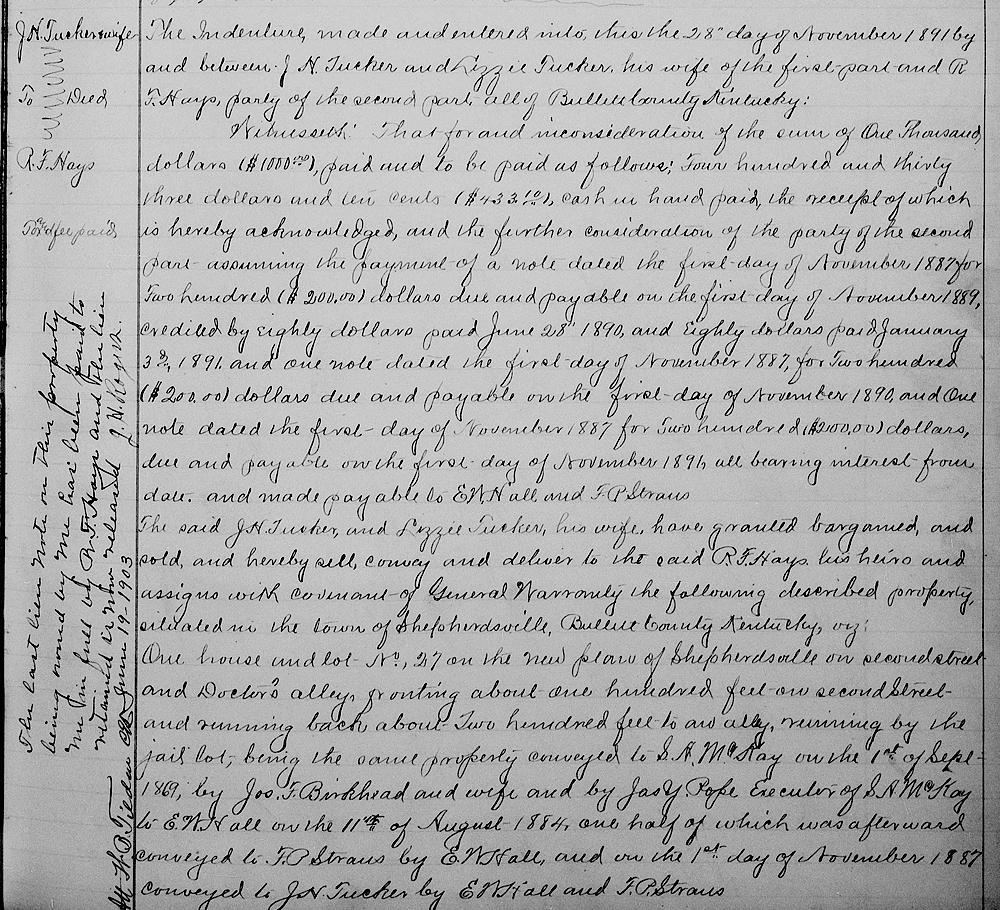 J.H. Tucker & wife
To Deed
R.F. Hays
Tax & fee paid
The Indenture, made and entered into, this the 28" day of November 1891 by
and between J H. Tucker and Lizzie Tucker, his wife of the first part and R
F. Hays, party of the second part, all of Bullitt County Kentucky:
Witnesseth: That for and inconsideration of the sum of One Thousand,
dollars ($1000 00), paid and to be paid as follows; Four hundred and thirty
three dollars and ten cents ($433 10), cash in hand paid, the receipt of which
is hereby acknowledged, and the further consideration of the party of the second
part assuming the payment of a note dated the first day of November 1887 for
Two hundred ($200.00) dollars due and payable on the first day of November 1889,
credited by eighty dollars paid June 28" 1890, and Eighty dollars paid January
3rd, 1891, and one note dated the first day of November 1887, for Two hundred
($200.00) dollars due and payable on the first day of November 1890, and One
note dated the first day of November 1887 for Two hundred ($200.00) dollars,
due and payable on the first day of November 1891, all bearing interest from
date. and made payable to E.W. Hall and F.P. Straus
The said J.H. Tucker, and Lizzie Tucker, his wife, have granted bargained, and
sold, and hereby sell, convey and deliver to the said R.F. Hays. his heirs and
assigns with covenant of General Warranty the following described property,
situated in the town of Shepherdsville, Bullitt County Kentucky, viz:
One house and lot No. 27 on the new plan of Shepherdsville on second street
and Doctor's alley, fronting about one hundred feet on second Street
and running back about Two hundred feet to an alley, running by the
jail lot, being the same property conveyed to S.A. McKay on the 1st of Sept
1869, by Jos. F. Birkhead and wife and by Jas Y. Pope Executor of S.A McKay
to E.W. Hall on the 11th of August 1884, one half of which was afterward
conveyed to F.P. Straus by E.W. Hall, and on the 1st day of November 1887
conveyed to J.H. Tucker by E.W. Hall and F.P. Straus
The last lien note on this property
being owned by me has been paid to
me in full by R.F. Hays and the lien
retained is now released J.W. Rogers.
June 19-1903